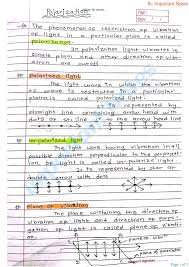 Imp Important Notes
Polarization
The phenomenon of restriction of vibration
of light in a particular plane is called
polarization.
In polarization light vibrates in
single plane and other direction of vib-
ration are cutoff.
polarized light
The light wave in which the vibration
of wave is restricted in a particular
plane is called polarized light.
It is represented by
straight line containing arrow head or
dots on a line
un-polarized light
The light wave having vibration in all
possible direction perpendicular to the propagati-
on of light is called un-polarized light.
It is represented by star or
arrow with dots
Plane of vibration
The plane containing the direction
of vibration of light and direction of propa-
gation of light is called plane of vibrati-
on.
plane of vibration
Page 1 of 5